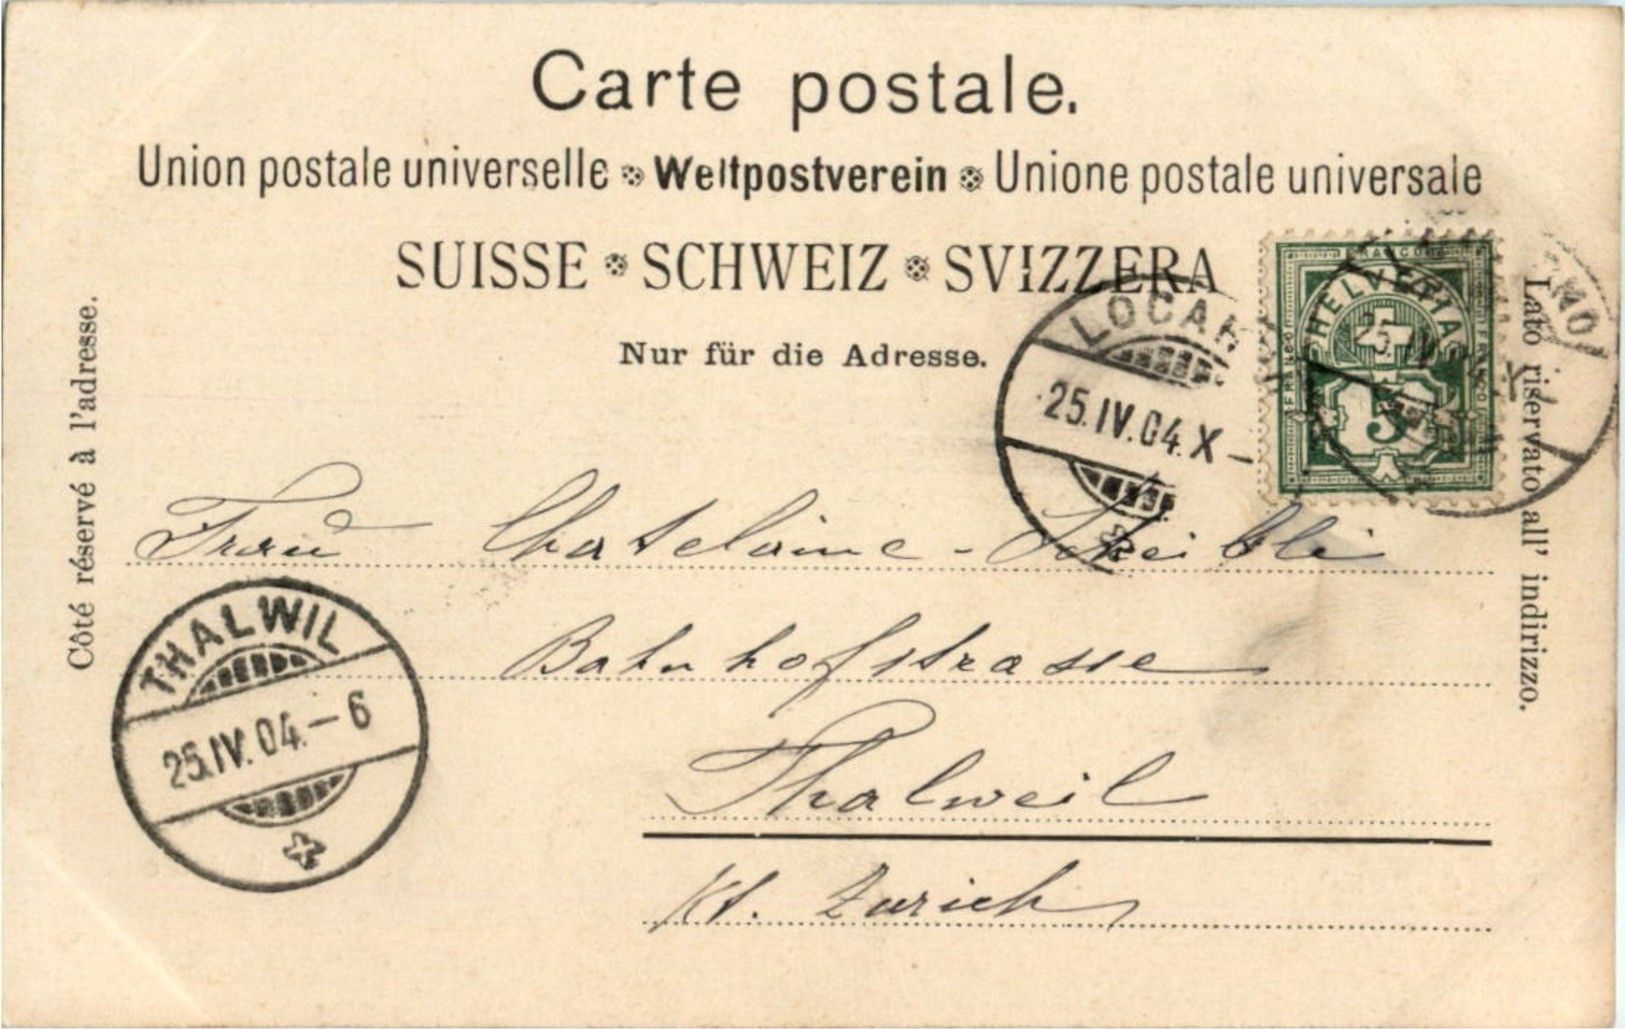 Carte postale.
Union postale universelle Weltpostverein Unione postale universale
SUISSE SCHWEIZ SVIZZERA
Nur für die Adresse.
Côté réservé à l'adresse.
Lato riservato all' indirizzo.
LOCAR
25.IV.04.X-
FRANCO
FRANCO
FRANCO
HELVETIA
5
25 IV
X
Frau Chatelaine-Scheibli
Bahnhofstrasse
Thalweil
Kt. Zürich
THALWIL
25.IV.04.-6